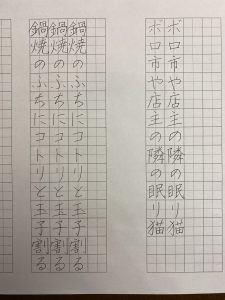 ボロ市や店主の隣の眠り猫
ボロ市や店主の隣の眠り猫
鍋焼のふちにコトリと玉子割る
鍋焼のふちにコトリと玉子割る
鍋焼のふちにコトリと玉子割る